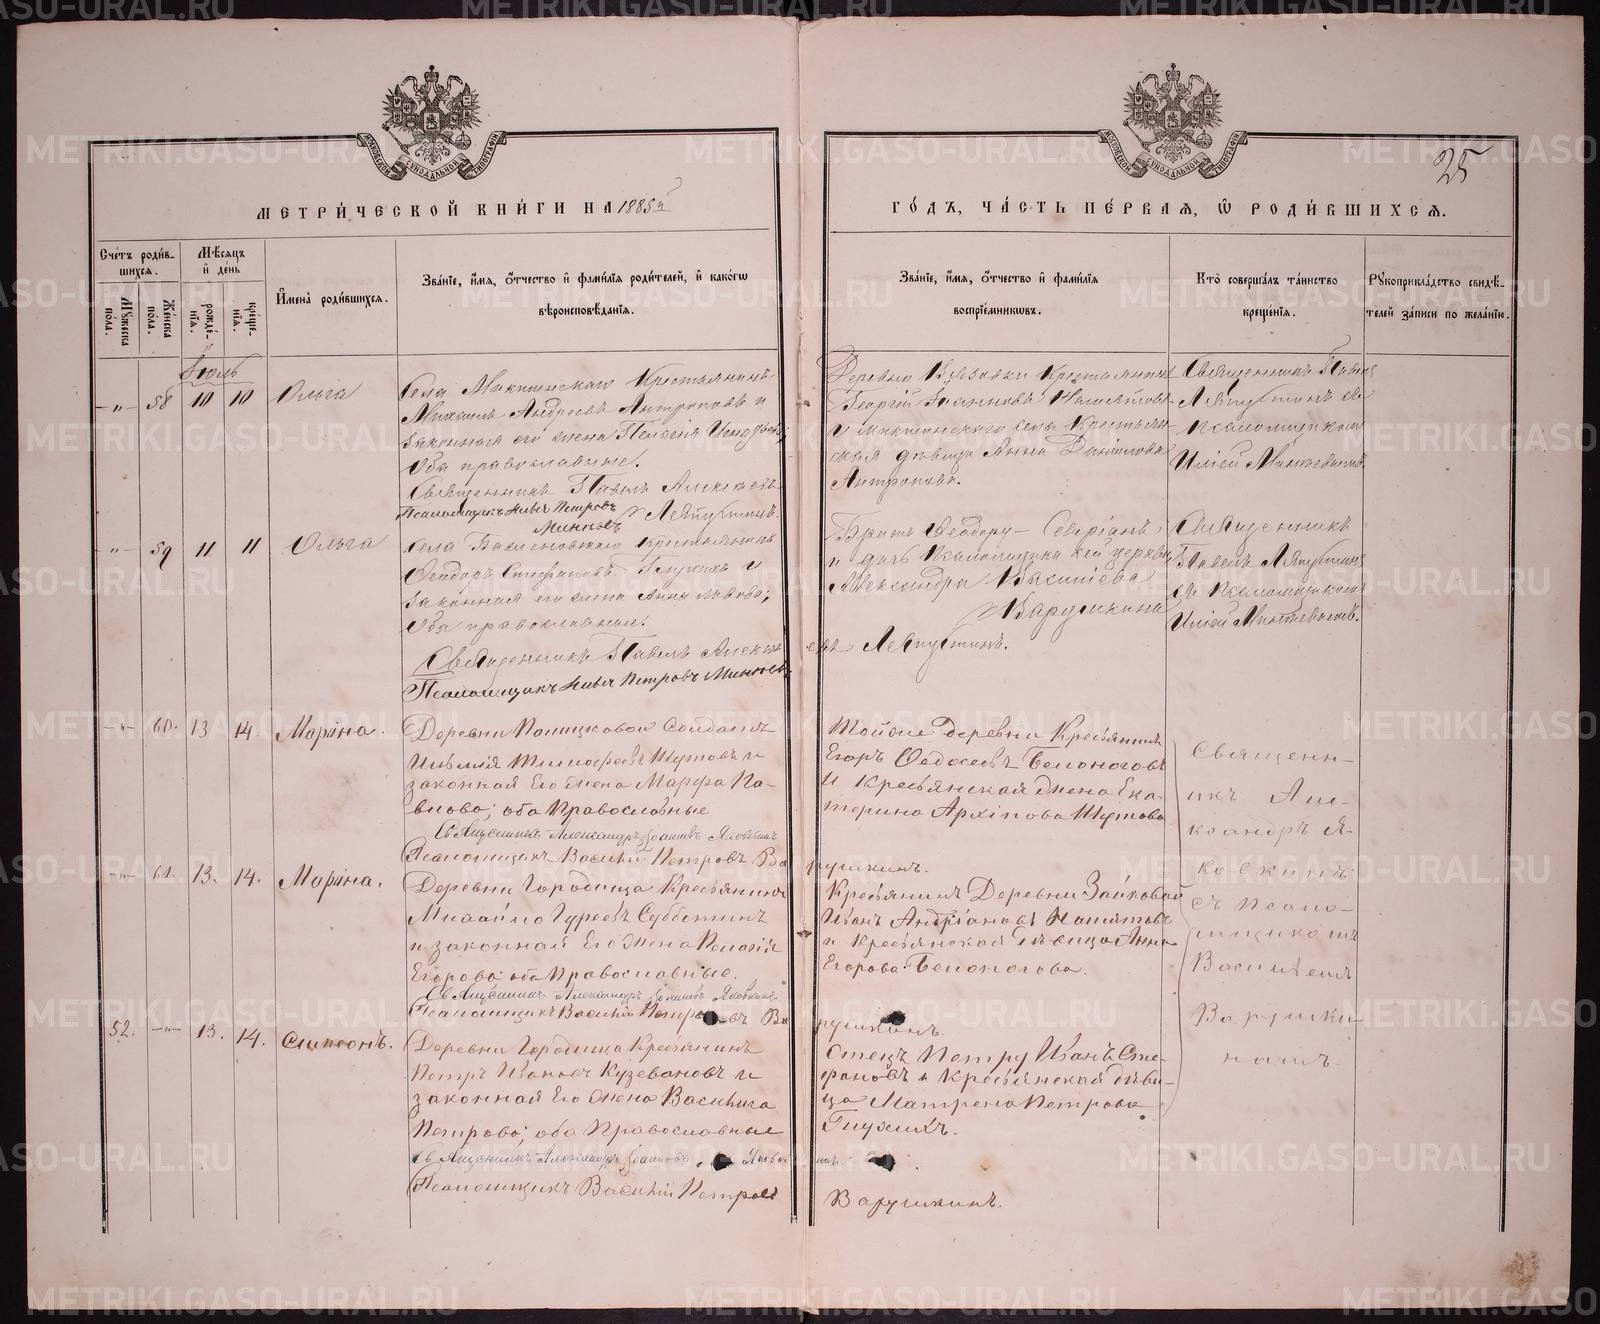 25
МЕТРИ́ЧЕСКОЙ КНИ́ГИ НА 1885й
ГО́ДЪ, ЧА́СТЬ ПЕ́РВАЯ, Ѡ РОДИ́ВШИХСЯ.
Сче́тъ роди́в-
шихся.
Мꙋжеска по́ла.
Же́нска по́ла.
Мѣ́сяцъ и́ де́нь
рожде́-
нїя.
креще́-
нїя.
И҆мена̀ роди́вшихся.
Зва́нїе, и҆́мя, ѻ҆́тчество и҆ фами́лїя роди́телей, и҆ како́гѡ
вѣроисповѣ́данїя.
Зва́нїе, и҆́мя, ѻ҆́тчество и҆ фами́лїя
воспрїе́мникѡвъ.
Кто̀ соверша́лъ та́инство
креще́нїя.
Рꙋкоприкла́дство свидѣ́-
телей за́писи по жела́нїю.
Іюль
—"— 58 10 10 Ольга
Села Мактинскаго Крестьянинъ
Михаилъ Андреевъ Антроповъ и
законная его жена Пелагія
Оба православные.
Священникъ Павелъ Алексѣевъ
Псаломщикъ Илія Петровъ Ляпустинъ.
Деревни Вязовки Крестьянинъ
Георгій Іоанновъ
села Крестьян-
ская дѣвица Анна Даніилова
Антропова.
Священникъ Павелъ
Ляпустинъ съ
псаломщикомъ
Иліей
—"— 59 11 11 Ольга
Села Крестьянинъ
Ѳеодоръ Стефановъ Глухихъ и
законная его жена Анна Львова;
Оба православные.
Священникъ Павелъ Алексѣевъ Ляпустинъ.
Псаломщикъ Илія Петровъ
Братъ Ѳеодору — Северіанъ
и дочь псаломщика сей церкви
Александра Васильева
Варушкина
Священникъ
Павелъ Ляпустинъ
съ псаломщикомъ
Иліей
—"— 60. 13 14. Маріна.
Деревни Солдатъ
Тимофеевъ Шутовъ и
законная Его Жена Марфа Па-
влова; оба Православные
Священникъ Александръ Іоанновъ Яковкинъ
Псаломщикъ Василій Петровъ Варушкинъ.
Тойже деревни Кресьянинъ
Егоръ Ѳедосеевъ Белоноговъ
И Кресьянская Жена Ека-
терина Архіпова Шутова
Священн-
икъ Але-
ксандръ Я-
ковкинъ
съ Псало-
мщикомъ
Васильемъ
Варушки-
намъ.
—"— 61. 13. 14. Маріна.
Деревни Городища Кресьянинъ
Михайло Гуреевъ Субботинъ
и законная Его Жена Пелагія
Егорова; оба Православные.
Священникъ Александръ Іоанновъ Яковкинъ.
Псаломщикъ Василій Петровъ Варушкинъ.
Кресьянинъ Деревни Зайковой
Иванъ Андріановъ
и Кресьянская Дѣвица Анна
Егорова Белоногова.
52. —"— 13. 14. Симеонъ.
Деревни Городища Кресьянинъ
Петръ Ивановъ Кузевановъ и
законная Его Жена Василиса
Петрова; оба Православные
Священникъ Александръ Іоанновъ
Псаломщикъ Василій Петровъ Варушкинъ.
Отецъ Петру Иванъ Сте-
фановъ и Кресьянская дѣви-
ца Матрена Петрова
Глухихъ.
METRIKI.GASO-URAL.RU